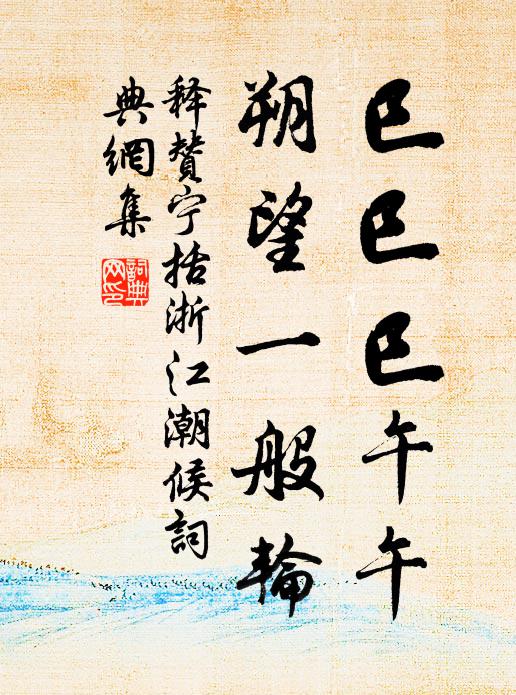 巳巳巳午午
朔望一般輪
释贊宁括浙江潮候詞
典網集
詞典
网印